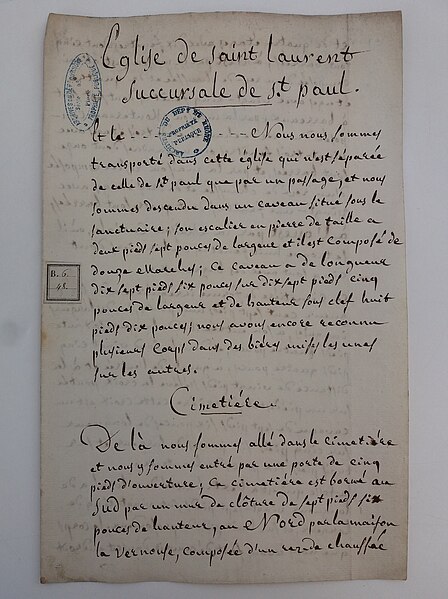 Eglise de saint laurent
succursale de st paul.
Et le - - - - - - - - Et Dus nous sommes
transporté dans cette église qui n'est séparée
de celle de st paul que par un passage, et nous
sommes descendu dans un caveau situé sous le
sanctuaire; son escalier en pierre de taille a
deux pieds sept pouces de largeur et il est composé de
douze Marches; Ce caveau a de longueur
dix sept pieds six pouces sur dix sept pieds cinq
pouces de largeur et de hauteur sous clef huit
pieds dix pouces; nous avons encore reconnu
plusieurs Corps dans des bières mises les unes
sur les autres.
B. 6.
48.
Cimetiére.
De là nous sommes allé dans le cimetiére
et nous y sommes entré par une porte de cinq
pieds d'ouverture; Ce cimetiére est borné au
Sud par un mur de clôture de sept pieds six
pouces de hauteur, au Nord par la maison
la Vernouse, composée d'un rez de chaussée